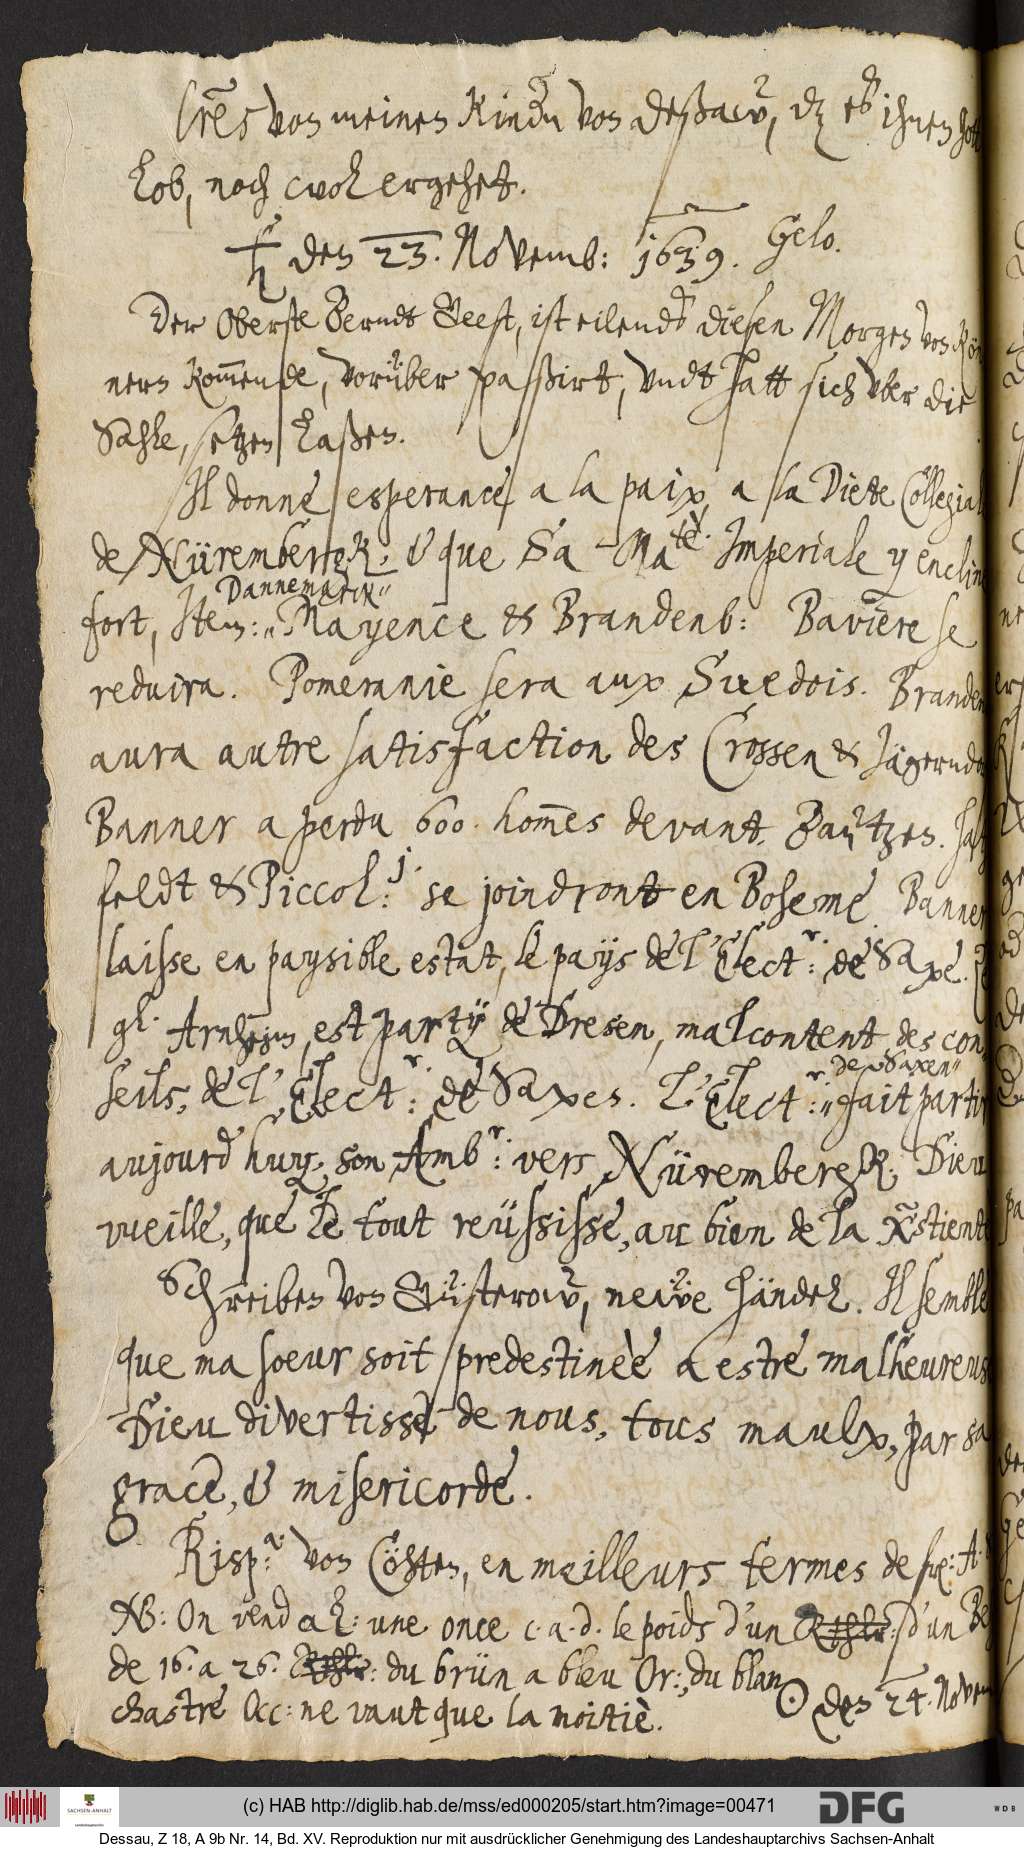 Lres von meinen Kindern von Deßaw, dz es ihnen gott
Lob, noch wol ergehet.
♄ den 23. Novemb: 1639. Gelo.
Der Oberste Berndt Geest, ist eilends diesen Morgen von Kön
nern kommende, vorüber paßirt, undt hatt sich uber die
Sahle, setzen laßen.
Il donne esperance a la paix, a la Diete Collegiale
de Nüremberck, & que Sa Matè. Imperiale y encline
fort, Item: " Dannemarck " Mayence & Brandenb: Baviere se
reduira. Pomeranie sera aux Suedois. Branden
aura autre satisfaction des Crossen & Jägerndo
Banner a perdu 600. hom̄es devant Bautzen. Hatz
feldt & Piccol:j. se joindront en Boheme. Banner
laisse en paysible estat, le païjs de l'Elect:r. de Saxe. Le
gl. Arnheim, est partÿ de Dresen, malcontent des con¬
seils, de l'Elect:r. de Saxes. L'Elect:r. " de Saxen " fait partir
aujourd'huy, son Amb:r. vers Nüremberck. Dieu
vueille, que le tout reüssisse, au bien de la Xstienté
Schreiben von Güsterow, newe händel. Il semble
que ma soeur soit predestineè a estre malheureuse
Dieu divertisse de nous, tous maulx, par sa
grace, & misericorde.
Risp:a. von Cöhten, en meilleurs termes de fr: A.
NB: On vend a L: une once c. a. d. le poids d'un Rthlr: d'un
de 16. a 26. Rthlr: du brün a bleu Or:, du blan
chastre &c: ne vaut que la moitiè.
☉ den 24. Novem
(c) HAB http://diglib.hab.de/mss/ed000205/start.htm?image=00471
SACHSEN-ANHALT
Landeshauptarchiv
DFG
WDB
Dessau, Z 18, A 9b Nr. 14, Bd. XV. Reproduktion nur mit ausdrücklicher Genehmigung des Landeshauptarchivs Sachsen-Anhalt